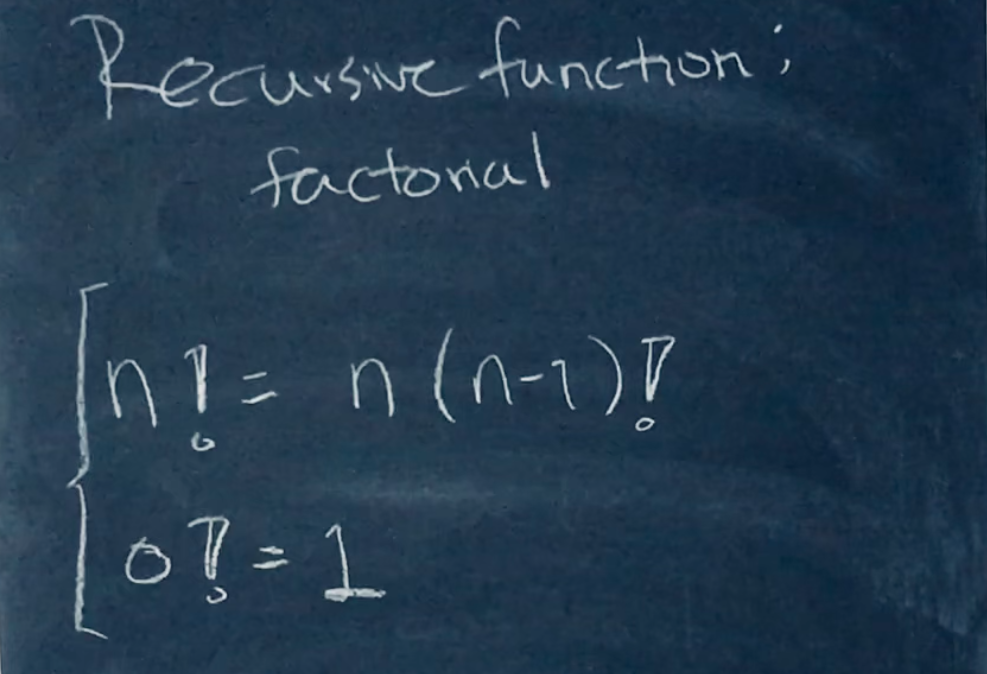 Recursive function;
factorial
n! = n(n-1)!
0! = 1